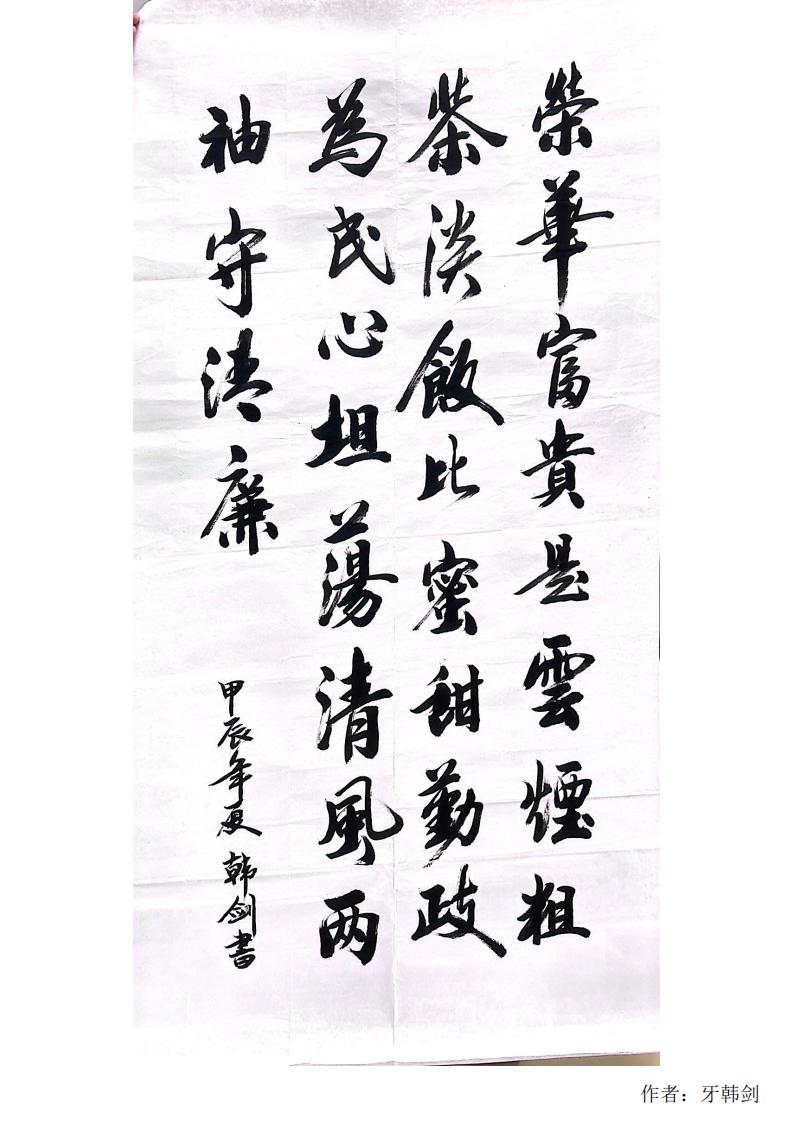 榮華富貴是雲煙粗
茶淡飯比蜜甜勤政
為民心坦蕩清風两
袖守清廉
甲辰年夏韩剑書
作者：牙韩剑